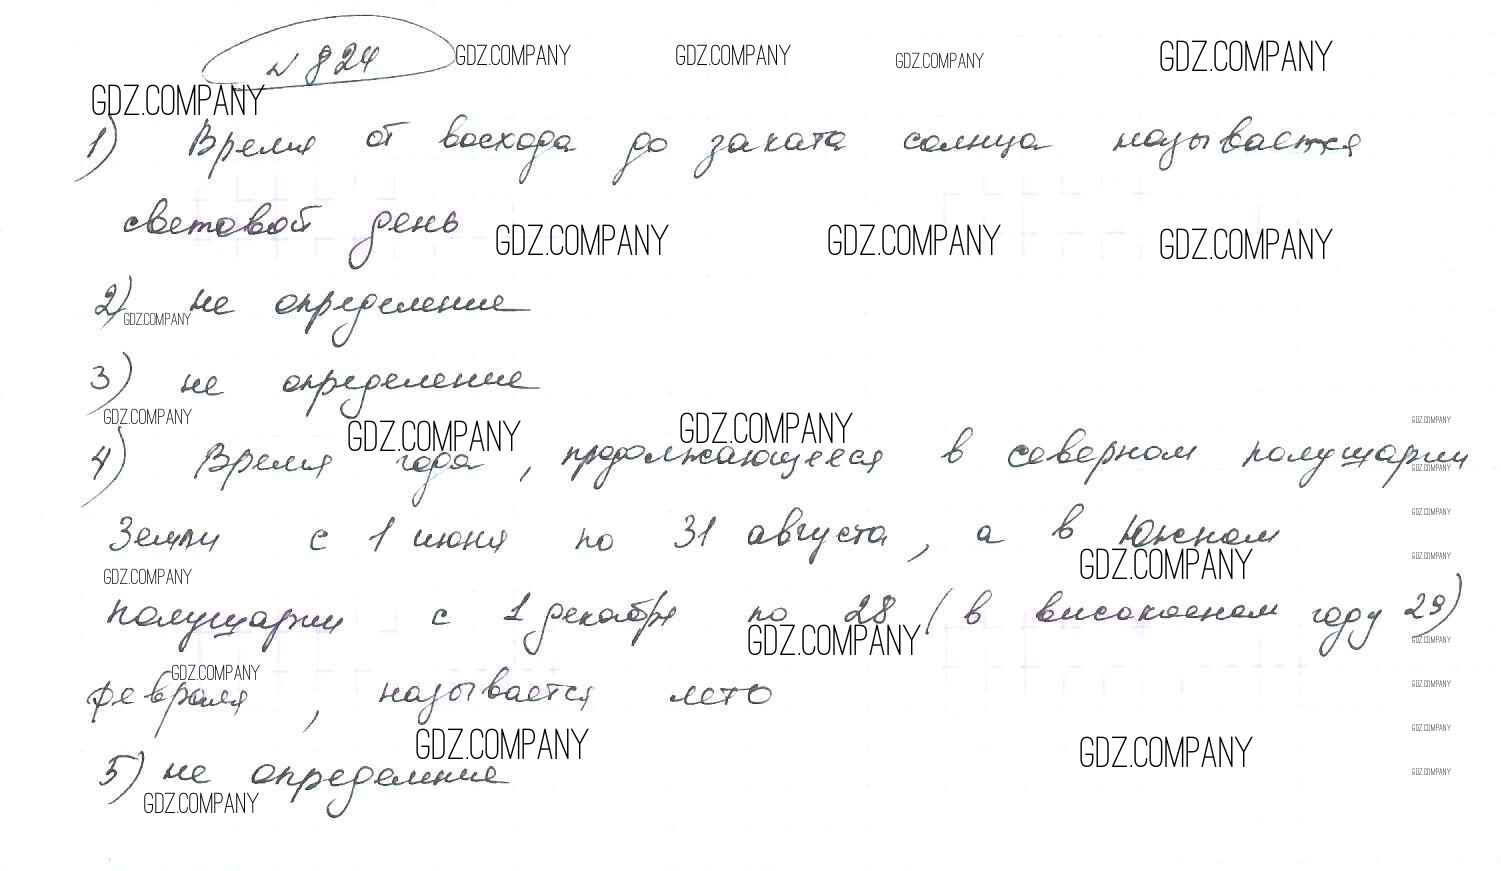 № 824 GDZ.COMPANY GDZ.COMPANY GDZ.COMPANY GDZ.COMPANY
GDZ.COMPANY
1) Время от восхода до заката солнца называется
световой день GDZ.COMPANY GDZ.COMPANY GDZ.COMPANY
2) не определение
GDZ.COMPANY
3) не определение
GDZ.COMPANY GDZ.COMPANY GDZ.COMPANY GDZ.COMPANY
4) Время года, продолжающееся в северном полушарии
GDZ.COMPANY
GDZ.COMPANY
Земли с 1 июня по 31 августа, а в Южном
GDZ.COMPANY GDZ.COMPANY GDZ.COMPANY
полушарии с 1 декабря по 28 (в високосном году 29)
GDZ.COMPANY GDZ.COMPANY
GDZ.COMPANY GDZ.COMPANY
февраля, называется лето
GDZ.COMPANY GDZ.COMPANY GDZ.COMPANY
5) не определение GDZ.COMPANY
GDZ.COMPANY